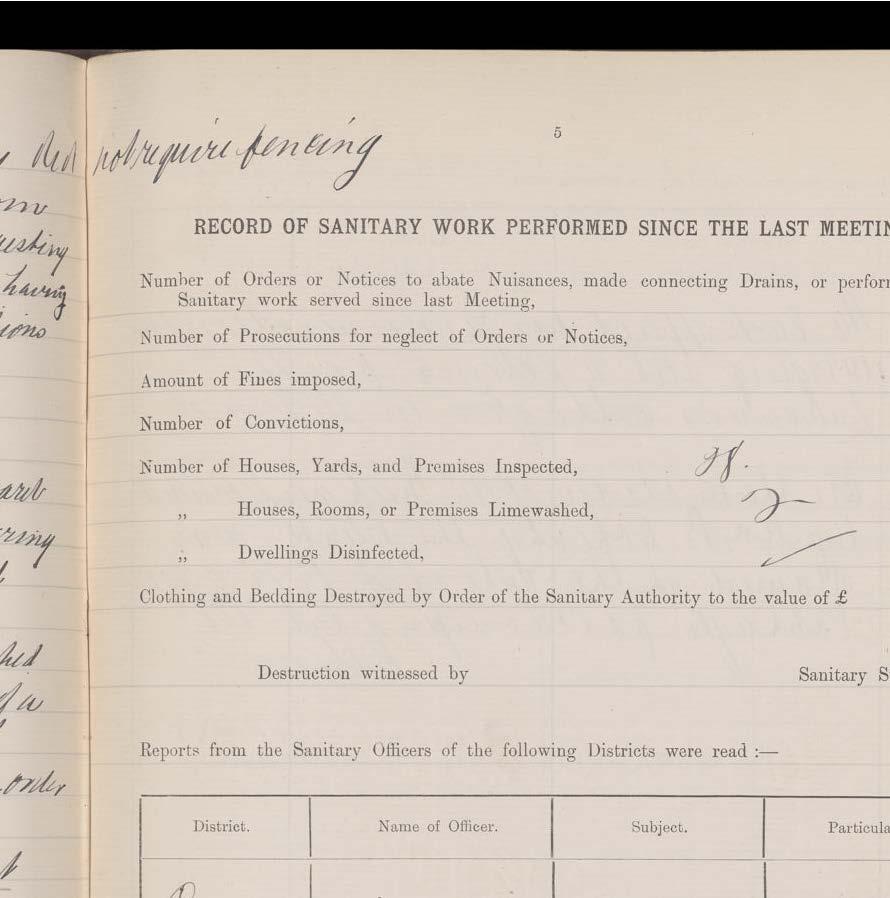 did not require fencing
5
RECORD OF SANITARY WORK PERFORMED SINCE THE LAST MEETIN
Number of Orders or Notices to abate Nuisances, made connecting Drains, or perfor
Sanitary work served since last Meeting,
Number of Prosecutions for neglect of Orders or Notices,
Amount of Fines imposed,
Number of Convictions,
Number of Houses, Yards, and Premises Inspected,
„ Houses, Rooms, or Premises Limewashed, 2
„ Dwellings Disinfected,
Clothing and Bedding Destroyed by Order of the Sanitary Authority to the value of £
Destruction witnessed by Sanitary S
Reports from the Sanitary Officers of the following Districts were read :—
District. Name of Officer. Subject. Particula
having
order